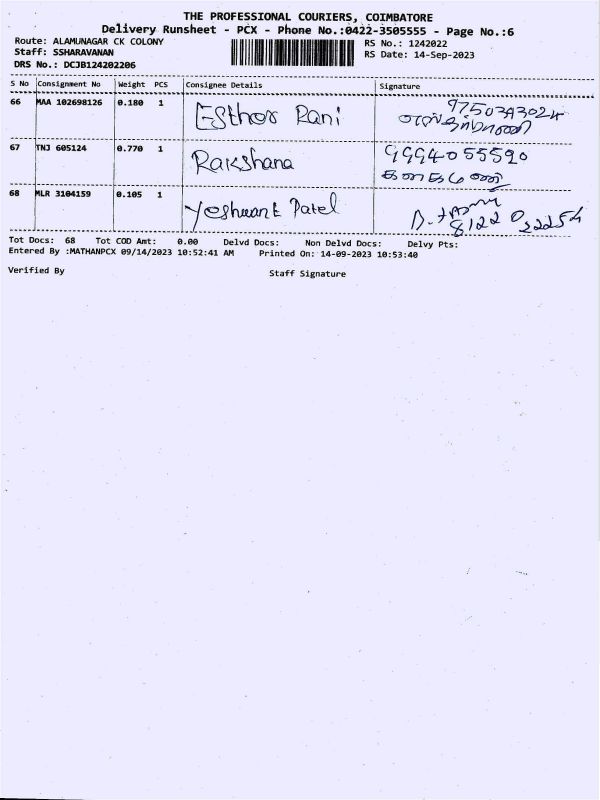 THE PROFESSIONAL COURIERS, COIMBATORE
Delivery Runsheet - PCX - Phone No.:0422-3505555 - Page No.:6
Route: ALAMUNAGAR CK COLONY
RS No.: 1242022
Staff: SSHARAVANAN
RS Date: 14-Sep-2023
DRS No.: DCJB124202206
S No Consignment No Weight PCS Consignee Details Signature
66 MAA 102698126 0.180 1 Esther Rani
67 TNJ 605124 0.770 1 Rakshana 9994055590
68 MLR 3104159 0.105 1 Yeshwant Patel 8122022254
Tot Docs: 68 Tot COD Amt: 0.00 Delvd Docs: Non Delvd Docs: Delvy Pts:
Entered By :MATHANPCX 09/14/2023 10:52:41 AM Printed On: 14-09-2023 10:53:40
Verified By Staff Signature